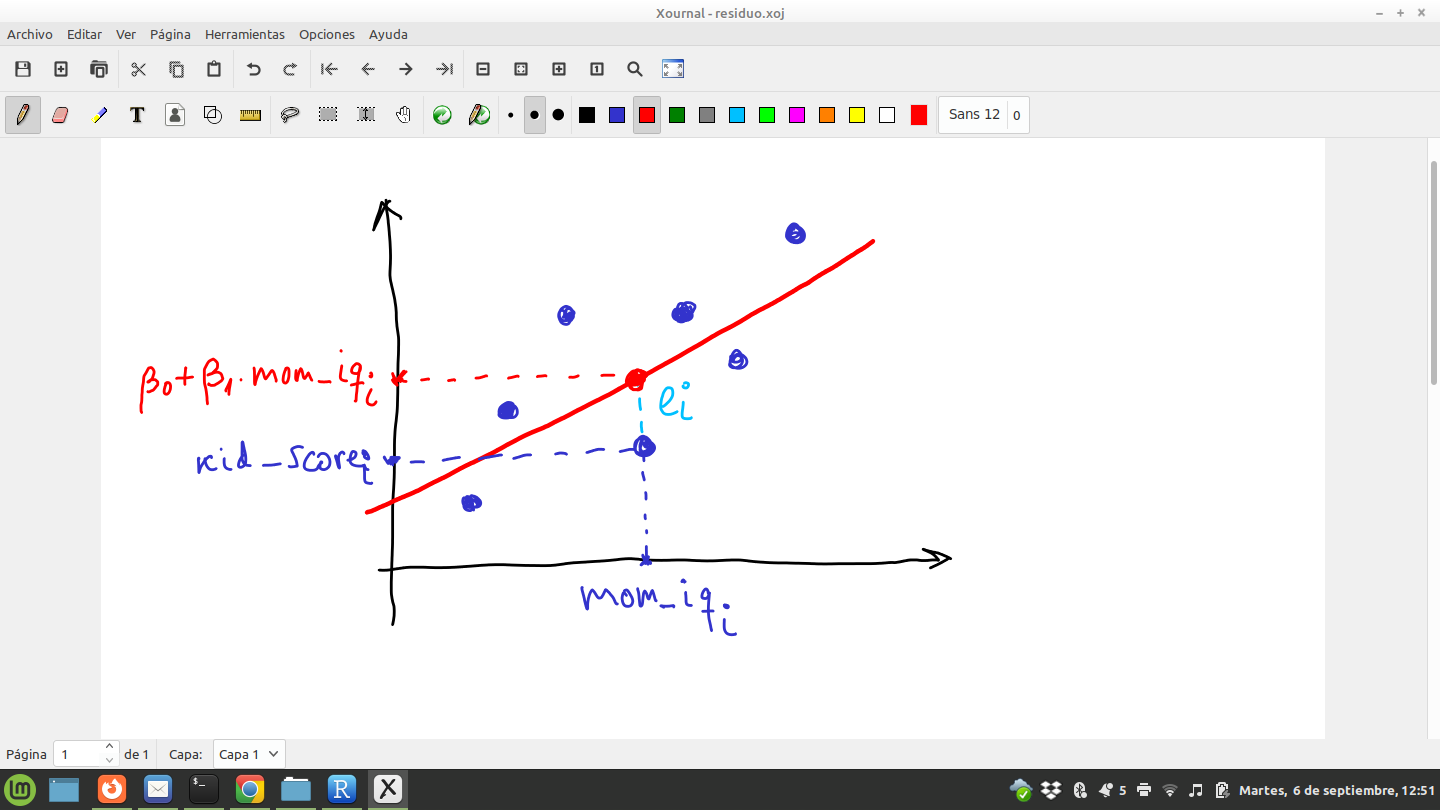 Xournal - residuo.xoj
Archivo Editar Ver Página Herramientas Opciones Ayuda
Sans 12 0
β₀ + β₁ . mom_iqᵢ
eᵢ
kid_scoreᵢ
mom_iqᵢ
Página 1 de 1 Capa: Capa 1
5 Martes, 6 de septiembre, 12:51